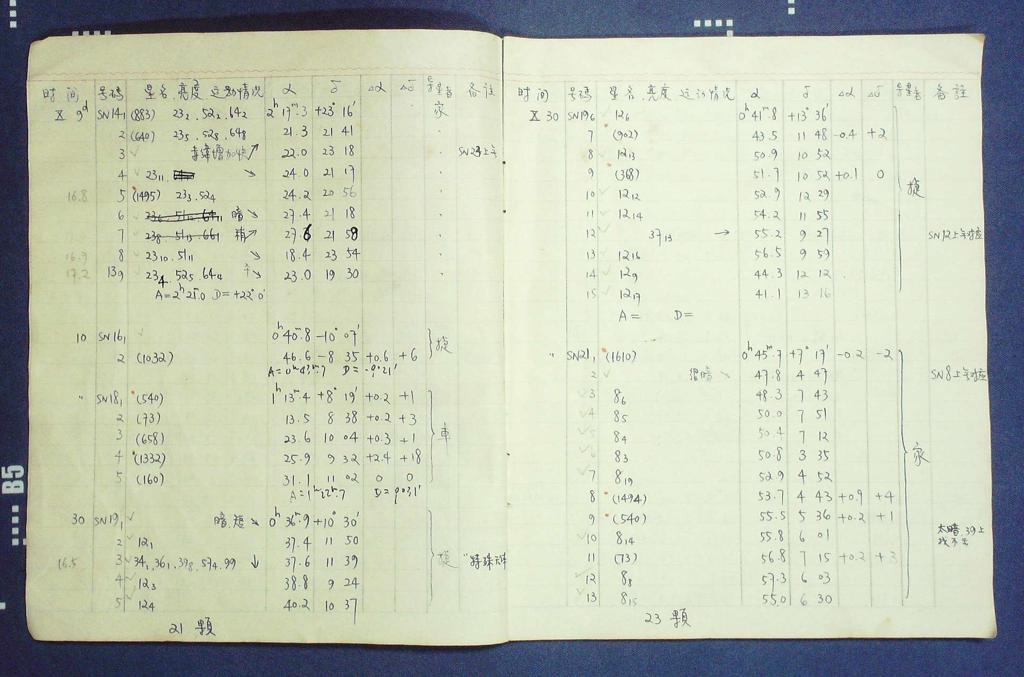 时间 号码 星名、亮度、运动情况 α δ Δα Δδ 备注
X 9ᵈ SN14₁ (883) 23₂, 52₂, 64₂ 2ʰ 17ᵐ.3 +23° 16′ 家
2 (640) 23₅, 52₈, 64₈ 21.3 21 41
3 ↗ 22.0 23 18
4 23₁₁ ↘ 24.0 21 17
16.8 5 (1495) 23₃, 52₄ 24.2 20 56
6 暗 ↘ 27.4 21 18
7 ↗ 27.6 21 58
16.9 8 23₁₀, 51₁ ↘ 18.4 23 54
17.2 139 23₄, 52₅, 64₁₂ ↘ 23.0 19 30
A=2ʰ 25ᵐ.0 D=+22° 0′
10 SN16₁ 0ʰ 40ᵐ.8 -10° 07′
2 (1032) 46.6 -8 35 +0.6 +6
A=0ʰ 43ᵐ.7 D=-9°21′
" SN18₁ (540) 1ʰ 13ᵐ.4 +8° 19′ +0.2 +1
2 (73) 13.5 8 38 +0.2 +3
3 (658) 23.6 10 04 +0.3 +1 車
4 (1332) 25.9 9 32 +2.4 +18
5 (160) 31.1 11 02 0 0
A=1ʰ 22ᵐ.7 D=9°31′
30 SN19₁ 暗、短 ↘ 0ʰ 36ᵐ.9 +10° 30′
2 12₁ 37.4 11 50
16.5 3 34₁, 36₁, 39₈, 594, 99 ↓ 37.6 11 39
4 12₃ 38.8 9 24
5 12₄ 40.2 10 37
21 顆
时间 号码 星名、亮度、运动情况 α δ Δα Δδ 备註
X 30 SN19₆ 12₆ 0ʰ 41ᵐ.8 +13° 36′
7 (902) 43.5 11 48 -0.4 +2
8 12₁₃ 50.9 10 52
9 (368) 51.7 10 52 +0.1 0
10 12₁₂ 52.9 12 29
11 12₁₄ 54.2 11 55
12 37₁₃ → 55.2 9 27 SN12上
13 12₁₆ 56.5 9 59
14 12₉ 44.3 12 12
15 12₁₇ 41.1 13 16
A= D=
" SN21₁ (1610) 0ʰ 45ᵐ.7 +7° 17′ -0.2 -2
2 很暗 ↘ 47.8 4 47 SN8上
3 8₆ 48.3 7 43
4 8₅ 50.0 7 51
5 8₄ 50.4 7 12
6 8₃ 50.8 3 35 家
7 8₁₉ 52.9 4 52
8 (1494) 53.7 4 43 +0.9 +4
9 (540) 55.5 5 36 +0.2 +1
10 8₁₄ 55.8 6 01 太暗, 39上
找不出
11 (73) 56.8 7 15 +0.2 +3
12 8₈ 57.3 6 03
13 8₁₅ 55.0 6 30
23 顆
B5